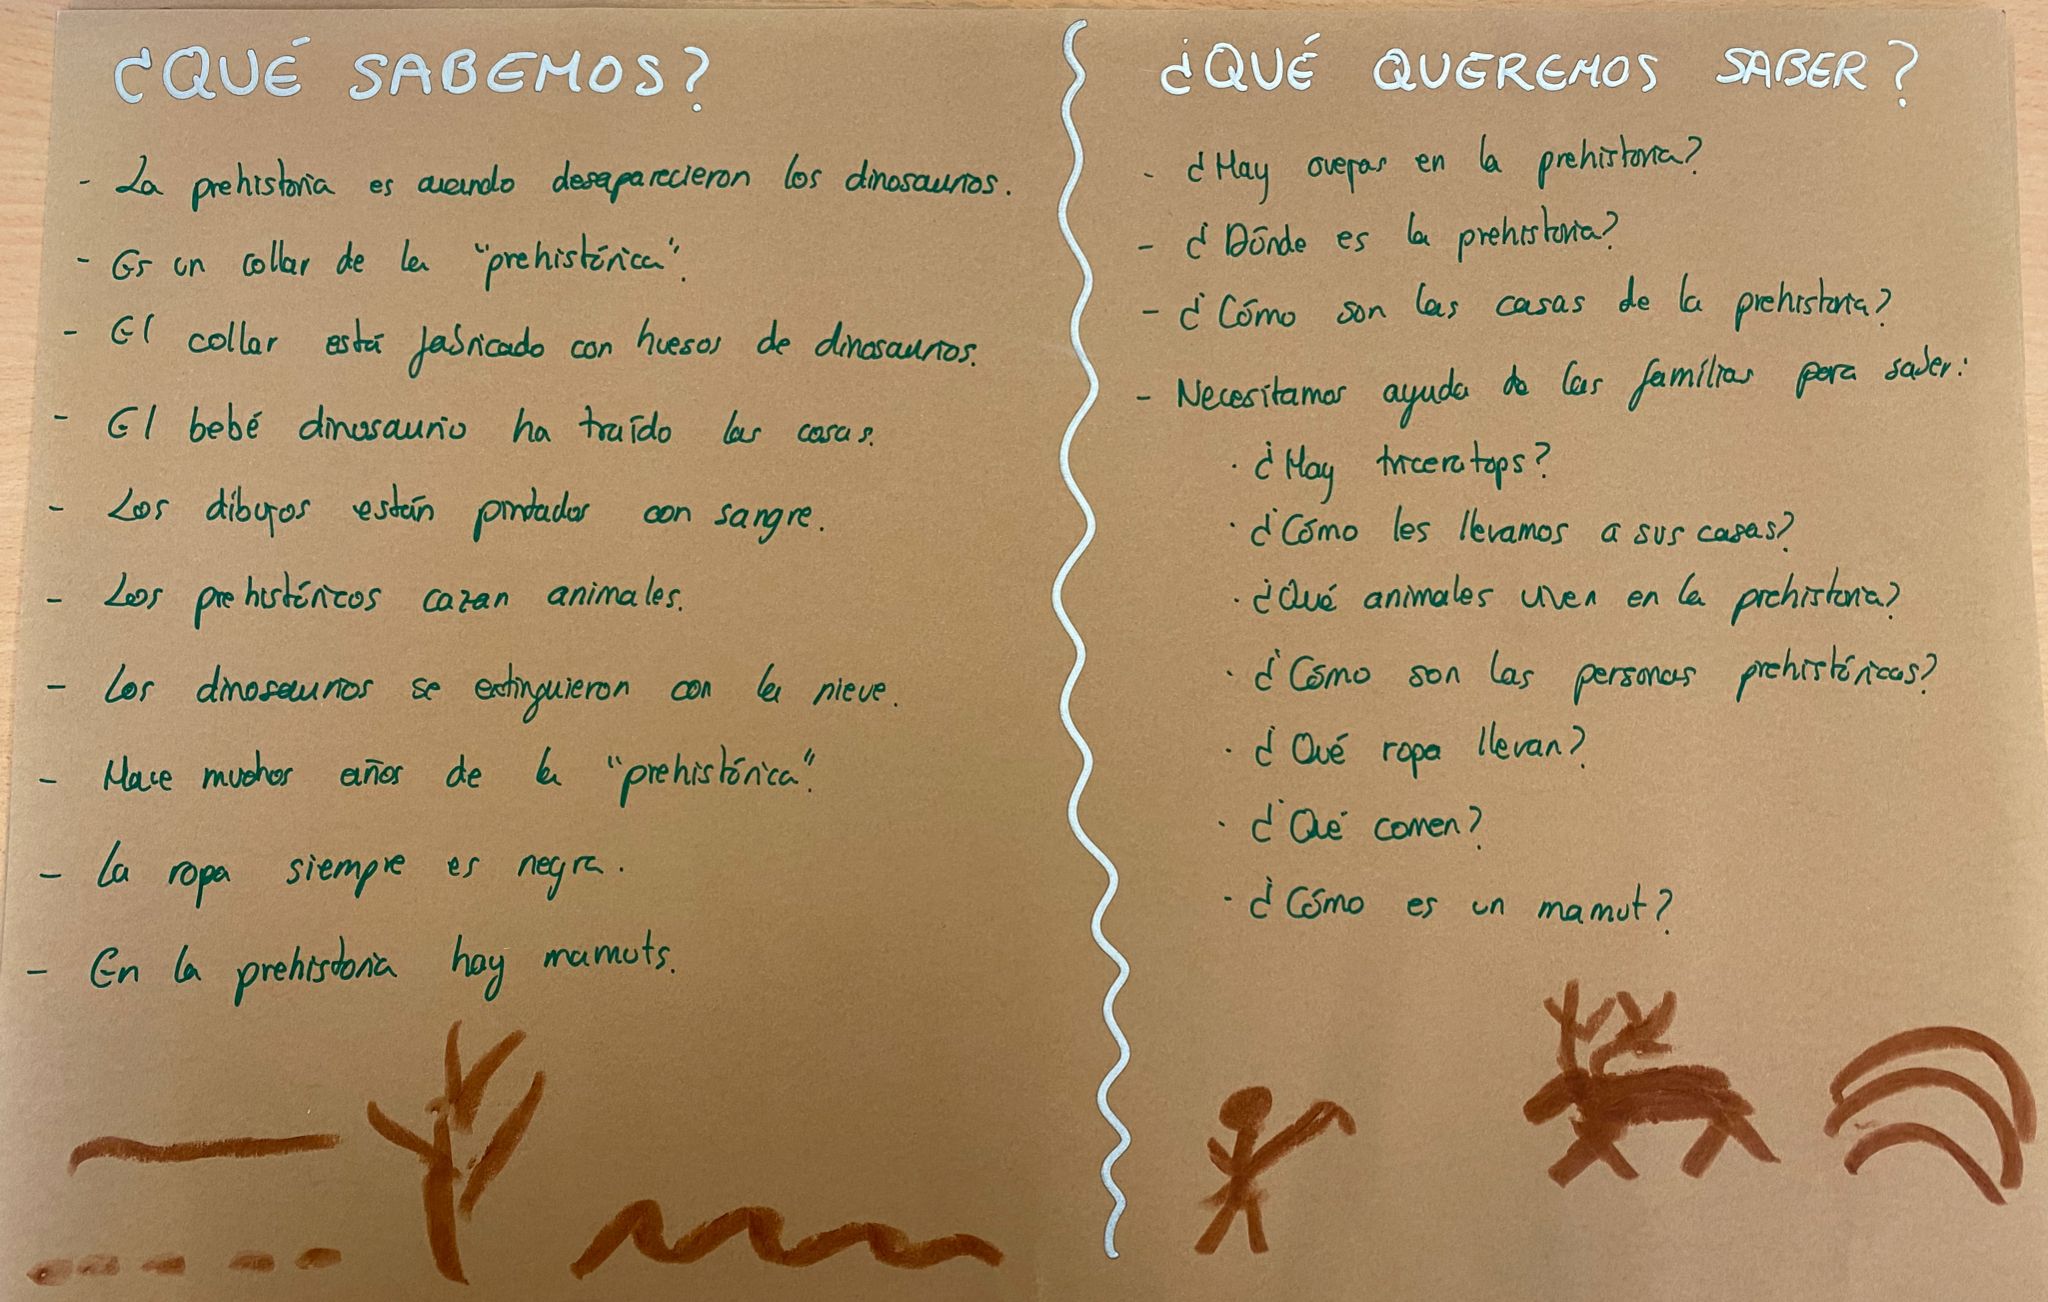 ¿QUÉ SABEMOS?
- La prehistoria es cuando desaparecieron los dinosaurios.
- Es un collar de la "prehistórica".
- El collar está fabricado con huesos de dinosaurios.
- El bebé dinosaurio ha traído las cosas.
- Los dibujos están pintados con sangre.
- Los prehistóricos cazan animales.
- Los dinosaurios se extinguieron con la nieve.
- Hace muchos años de la "prehistórica".
- La ropa siempre es negra.
- En la prehistoria hay mamuts.
¿QUÉ QUEREMOS SABER?
- ¿Hay ovejas en la prehistoria?
- ¿Dónde es la prehistoria?
- ¿Cómo son las casas de la prehistoria?
- Necesitamos ayuda de las famílias para saber:
· ¿Hay triceratops?
· ¿Cómo les llevamos a sus casas?
· ¿Qué animales viven en la prehistoria?
· ¿Cómo son las personas prehistóricas?
· ¿Qué ropa llevan?
· ¿Qué comen?
· ¿Cómo es un mamut?